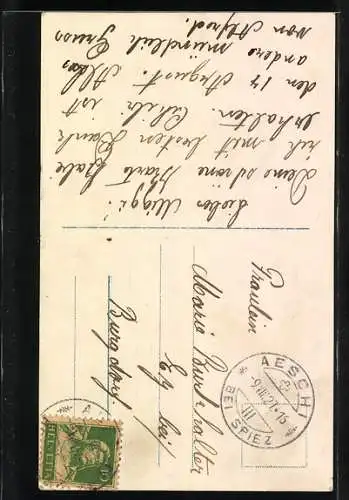 Liebes Miggi!
Deine schöne Karte habe
ich mit bestem Dank
erhalten. Chilbi ist
den 14 August. Alles
andere mündlich Gruss
von Alfred.
Fräulein
Maria Burkhalter
Egg bei
Burgdorf.
AESCHI
BEI SPIEZ
HELVETIA
10